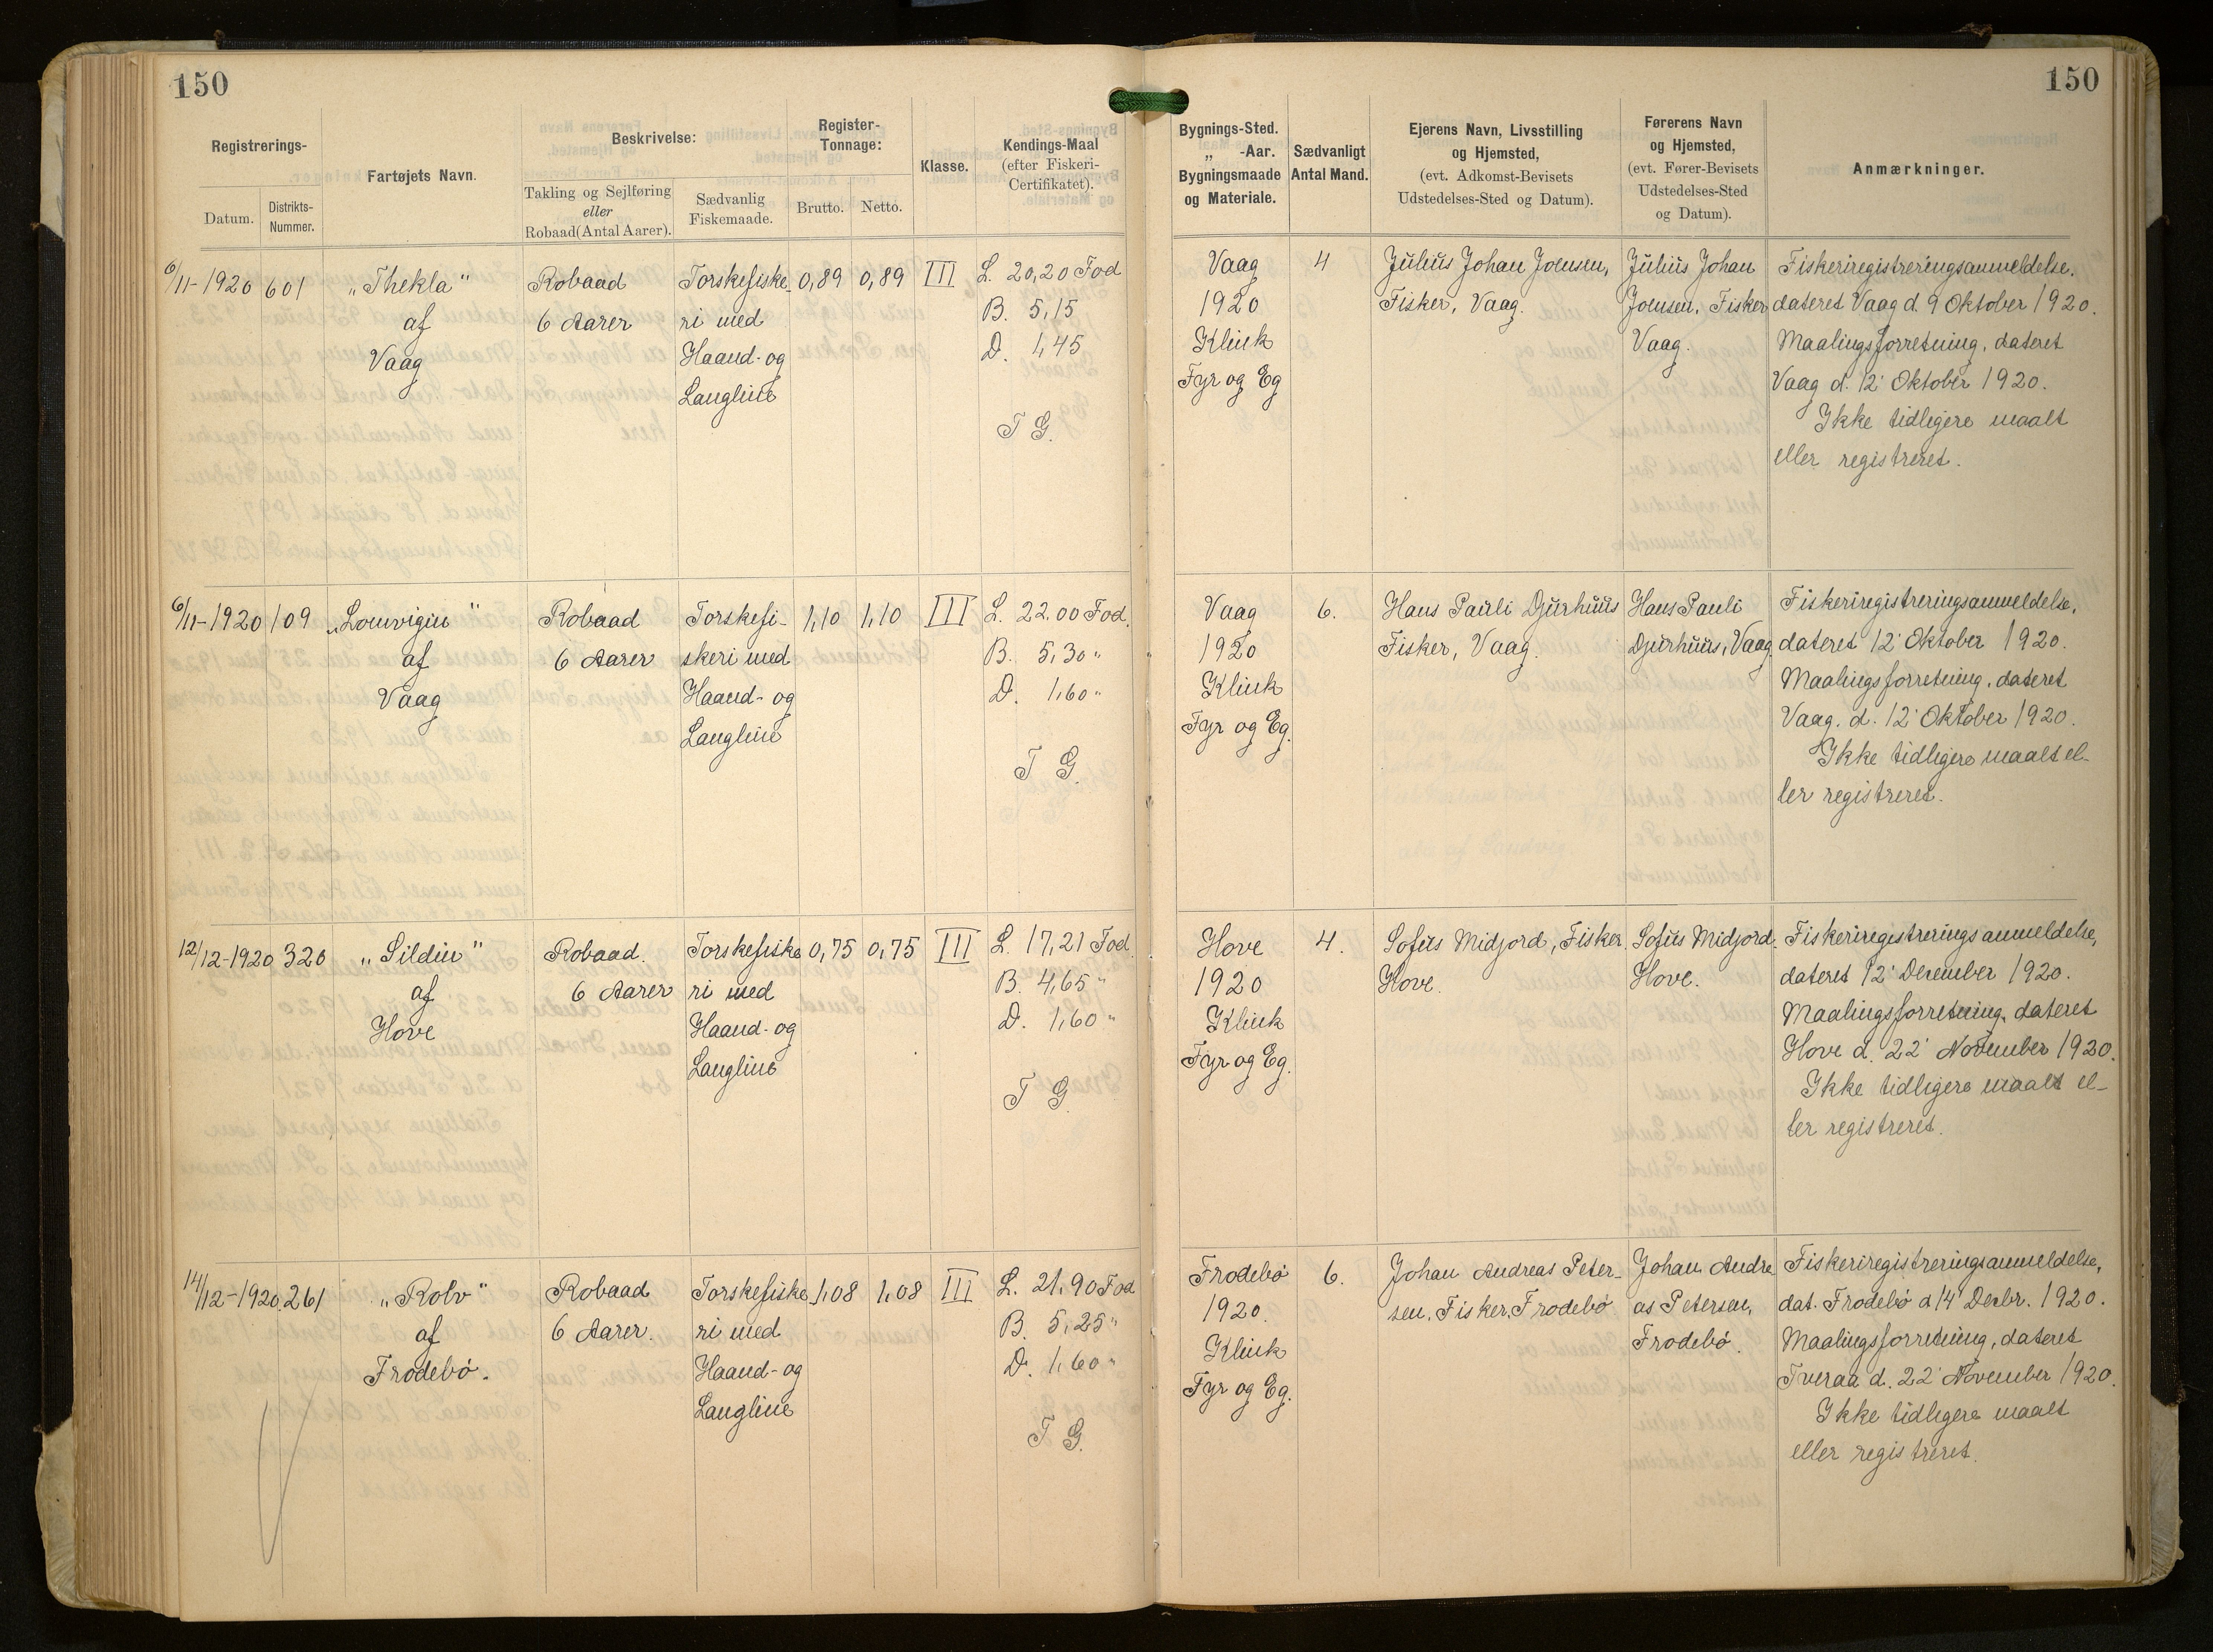 150
150
Registrerings-
Datum.
Distrikts-
Nummer.
Fartøjets Navn.
Beskrivelse:
Takling og Sejlføring
eller
Robaad (Antal Aarer).
Sædvanlig
Fiskemaade.
Register-
Tonnage:
Brutto.
Netto.
Klasse.
Kendings-Maal
(efter Fiskeri-
Certifikatet).
Bygnings-Sted.
„ -Aar.
Bygningsmaade
og Materiale.
Sædvanligt
Antal Mand.
Ejerens Navn, Livsstilling
og Hjemsted,
(evt. Adkomst-Bevisets
Udstedelses-Sted og Datum).
Førerens Navn
og Hjemsted,
(evt. Fører-Bevisets
Udstedelses-Sted
og Datum).
Anmærkninger.
6/11-1920
601
„Thekla"
af
Vaag
Robaad
6 Aarer
Torskefiske-
ri med
Haand- og
Langline
0,89
0,89
III
L. 20,20 Fod
B. 5,15
D. 1,45
T G.
Vaag
1920
Klink
Fyr og Eg
4
Julius Johan Joensen,
Fisker, Vaag.
Julius Johan
Joensen, Fisker
Vaag.
Fiskeriregistreringsanmeldelse,
dateret Vaag d. 9 Oktober 1920.
Maalingsforretning, dateret
Vaag d. 12' Oktober 1920.
Ikke tidligere maalt
eller registreret.
6/11-1920
109
„Lomvigin"
af
Vaag
Robaad
6 Aarer
Torskefi-
skeri med
Haand- og
Langline
1,10
1,10
III
L. 22.00 Fod.
B. 5,30 "
D. 1,60 "
T G.
Vaag
1920
Klink
Fyr og Eg.
6.
Hans Pauli Djurhuus
Fisker, Vaag.
Hans Pauli
Djurhuus, Vaag.
Fiskeriregistreringsanmeldelse,
dateret 12' Oktober 1920.
Maalingsforretning, dateret
Vaag. d. 12' Oktober 1920.
Ikke tidligere maalt el-
ler registreret.
12/12-1920
320
„Sildin"
af
Hove
Robaad.
6 Aarer
Torskefiske
ri med
Haand- og
Langline
0,75
0,75
III
L. 17,21 Fod.
B. 4,65 "
D. 1,60 "
T G.
Hove
1920
Klink
Fyr og Eg.
4.
Sofus Midjord, Fisker
Hove.
Sofus Midjord.
Hove.
Fiskeriregistreringsanmeldelse,
dateret 12' December 1920.
Maalingsforretning, dateret
Hove d. 22' November 1920.
Ikke tidligere maalt el-
ler registreret.
14/12-1920
261
„Rolv"
af
Frodebø.
Robaad
6 Aarer.
Torskefiske
ri med
Haand- og
Langline
1,08
1,08
III
L. 21.90 Fod
B. 5,25 "
D. 1,60 "
T G.
Frodebø
1920.
Klink
Fyr og Eg.
6.
Johan Andreas Peter-
sen, Fisker, Frodebø
Johan Andre
as Petersen,
Frodebø.
Fiskeriregistreringsanmeldelse,
dat. Frodebø d 14' Decbr. 1920.
Maalingsforretning, dateret
Tveraa d. 22' November 1920.
Ikke tidligere maalt
eller registreret.